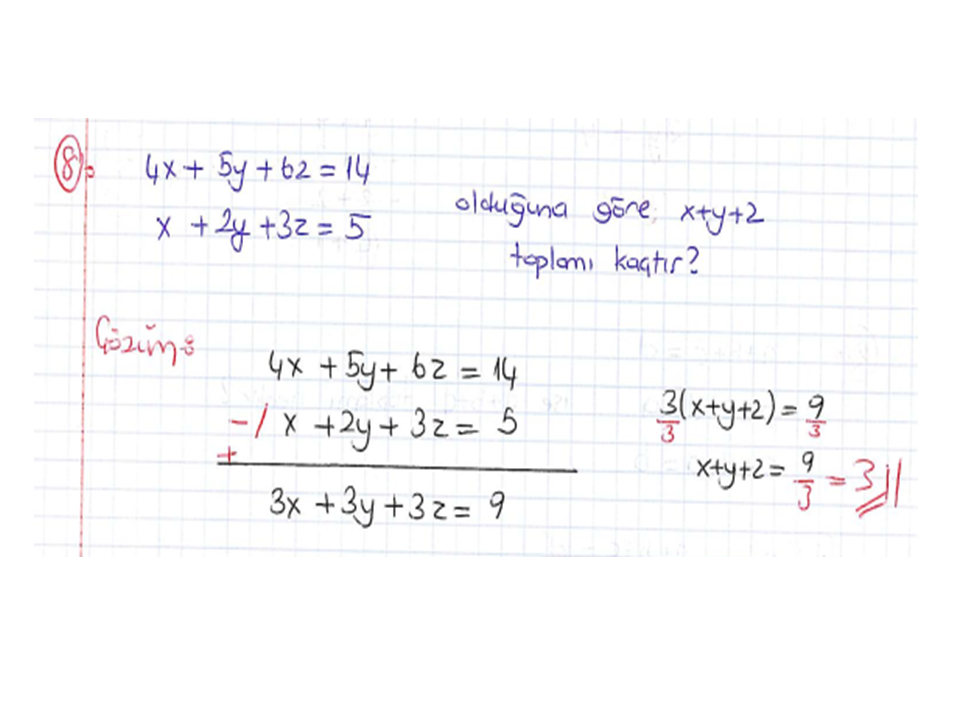 8. 4x + 5y + 6z = 14
x + 2y + 3z = 5
olduğuna göre, x+y+z
toplamı kaçtır?
Çözüm:
4x + 5y + 6z = 14
-/ x + 2y + 3z = 5
+
3x + 3y + 3z = 9
3(x+y+z) = 9
3 3
x+y+z = 9/3 = 3//